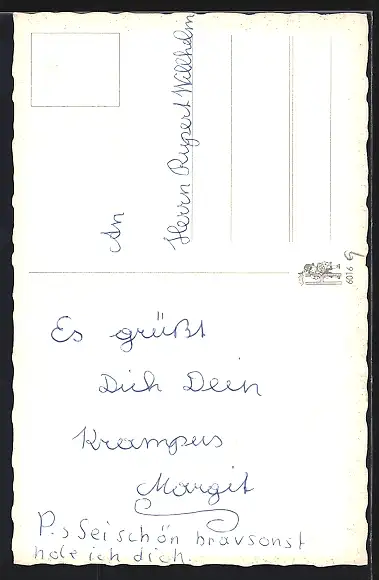 An
Herrn Rupert Willholm
6016
9
Es grüßt
Dich Dein
Krampus
Margit
P.s Sei schön brav sonst
hole ich dich.